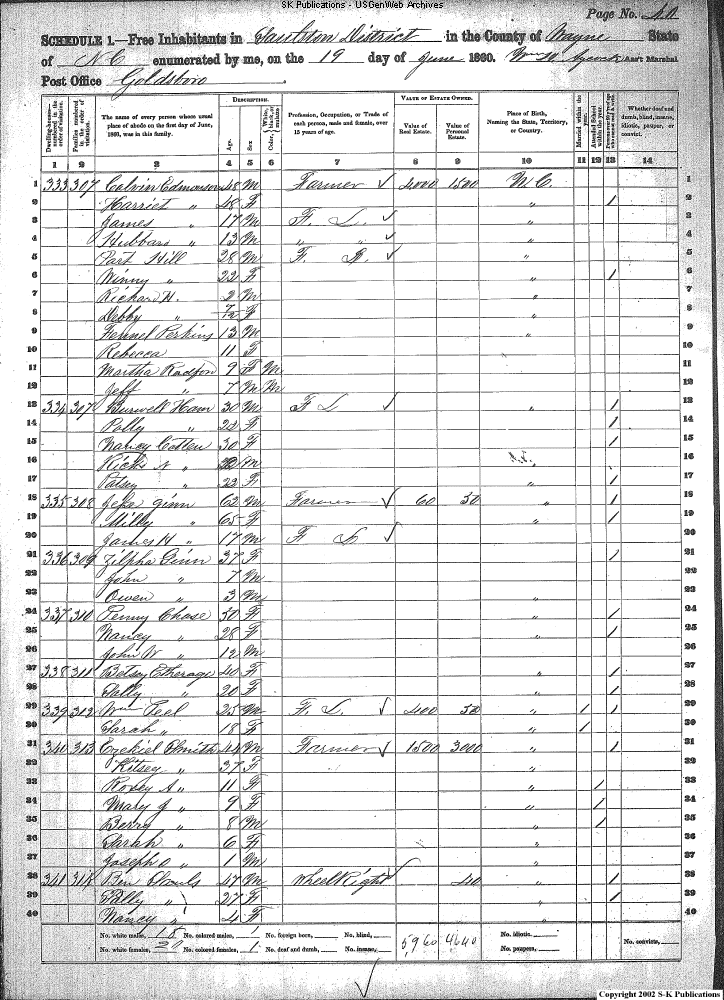 SK Publications - USGenWeb Archives
Page No. 40
SCHEDULE 1.—Free Inhabitants in Saulston District in the County of Wayne State
of N C enumerated by me, on the 19 day of June 1860. Ass't Marshal
Post Office Goldsboro
DESCRIPTION. VALUE OF ESTATE OWNED.
Dwelling-houses numbered in the order of visitation. Families numbered in the order of visitation. The name of every person whose usual place of abode on the first day of June, 1860, was in this family. Age. Sex. Color, White, black, or mulatto. Profession, Occupation, or Trade of each person, male and female, over 15 years of age. Value of Real Estate. Value of Personal Estate. Place of Birth, Naming the State, Territory, or Country. Married within the year. Attended School within the year. Whether deaf and dumb, blind, insane, idiotic, pauper, or convict.
1 2 3 4 5 6 7 8 9 10 11 12 13 14
1 333 307 Calvin Edmonson 48 M Farmer ✓ 4000 1500 N C. 1
2 Harriet " 48 F " / 2
3 James " 17 M F. L. ✓ " 3
4 Hubbard " 13 M " " ✓ " 4
5 Part Hill 28 M F. ✓ " 5
6 Winny " 22 F " / 6
7 Richard H. 2 M " 7
8 Debby " F " 8
9 Fennel Perkins 13 M " 9
10 Rebecca 11 F 10
11 Martha Radford 9 F M 11
12 Jeff " 7 M 12
13 334 307 Burwell Ham 30 M F L ✓ " / 13
14 Polly " 22 F " / 14
15 Nancy Cotten 30 F " / 15
16 Ricks N " M 16
17 Patsey " 22 F " / 17
18 335 308 Ginn 62 M Farmer ✓ 60 50 " / 18
19 Milly " 65 F " / 19
20 James H " 17 M F L. ✓ 20
21 336 309 Zilpha Ginn 37 F / 21
22 John " 7 M 22
23 Owen " 3 M 23
24 337 310 Penny Chase 50 F " / 24
25 Nancy " 28 F " / 25
26 John W " 12 M 26
27 338 311 Betsey Etherage 40 F " / 27
28 Sally " 20 F " / 28
29 339 312 Wm Teel 25 M F. L. ✓ 400 50 " / / 29
30 Sarah " 18 F " / 30
31 340 313 Ezekiel Smith 44 M Farmer ✓ 1500 3000 " / 31
32 Kitsey " 37 F " 32
33 Rosey A " 11 F " / 33
34 Mary J " 9 F " / 34
35 Berry " 8 M " / 35
36 Sarah " 6 F " 36
37 Joseph O " 1 M " 37
38 341 314 Ben Sauls 47 M Wheel Right ✓ 40 " / 38
39 Sally " 27 F " / 39
40 Nancy " 4 F " 40
No. white males, 18 No. colored males, 1 No. foreign born, No. blind, 5960 4640 No. idiotic, No. convicts,
No. white females, 20 No. colored females, 1 No. deaf and dumb, No. insane, No. paupers,
Copyright 2002 S-K Publications